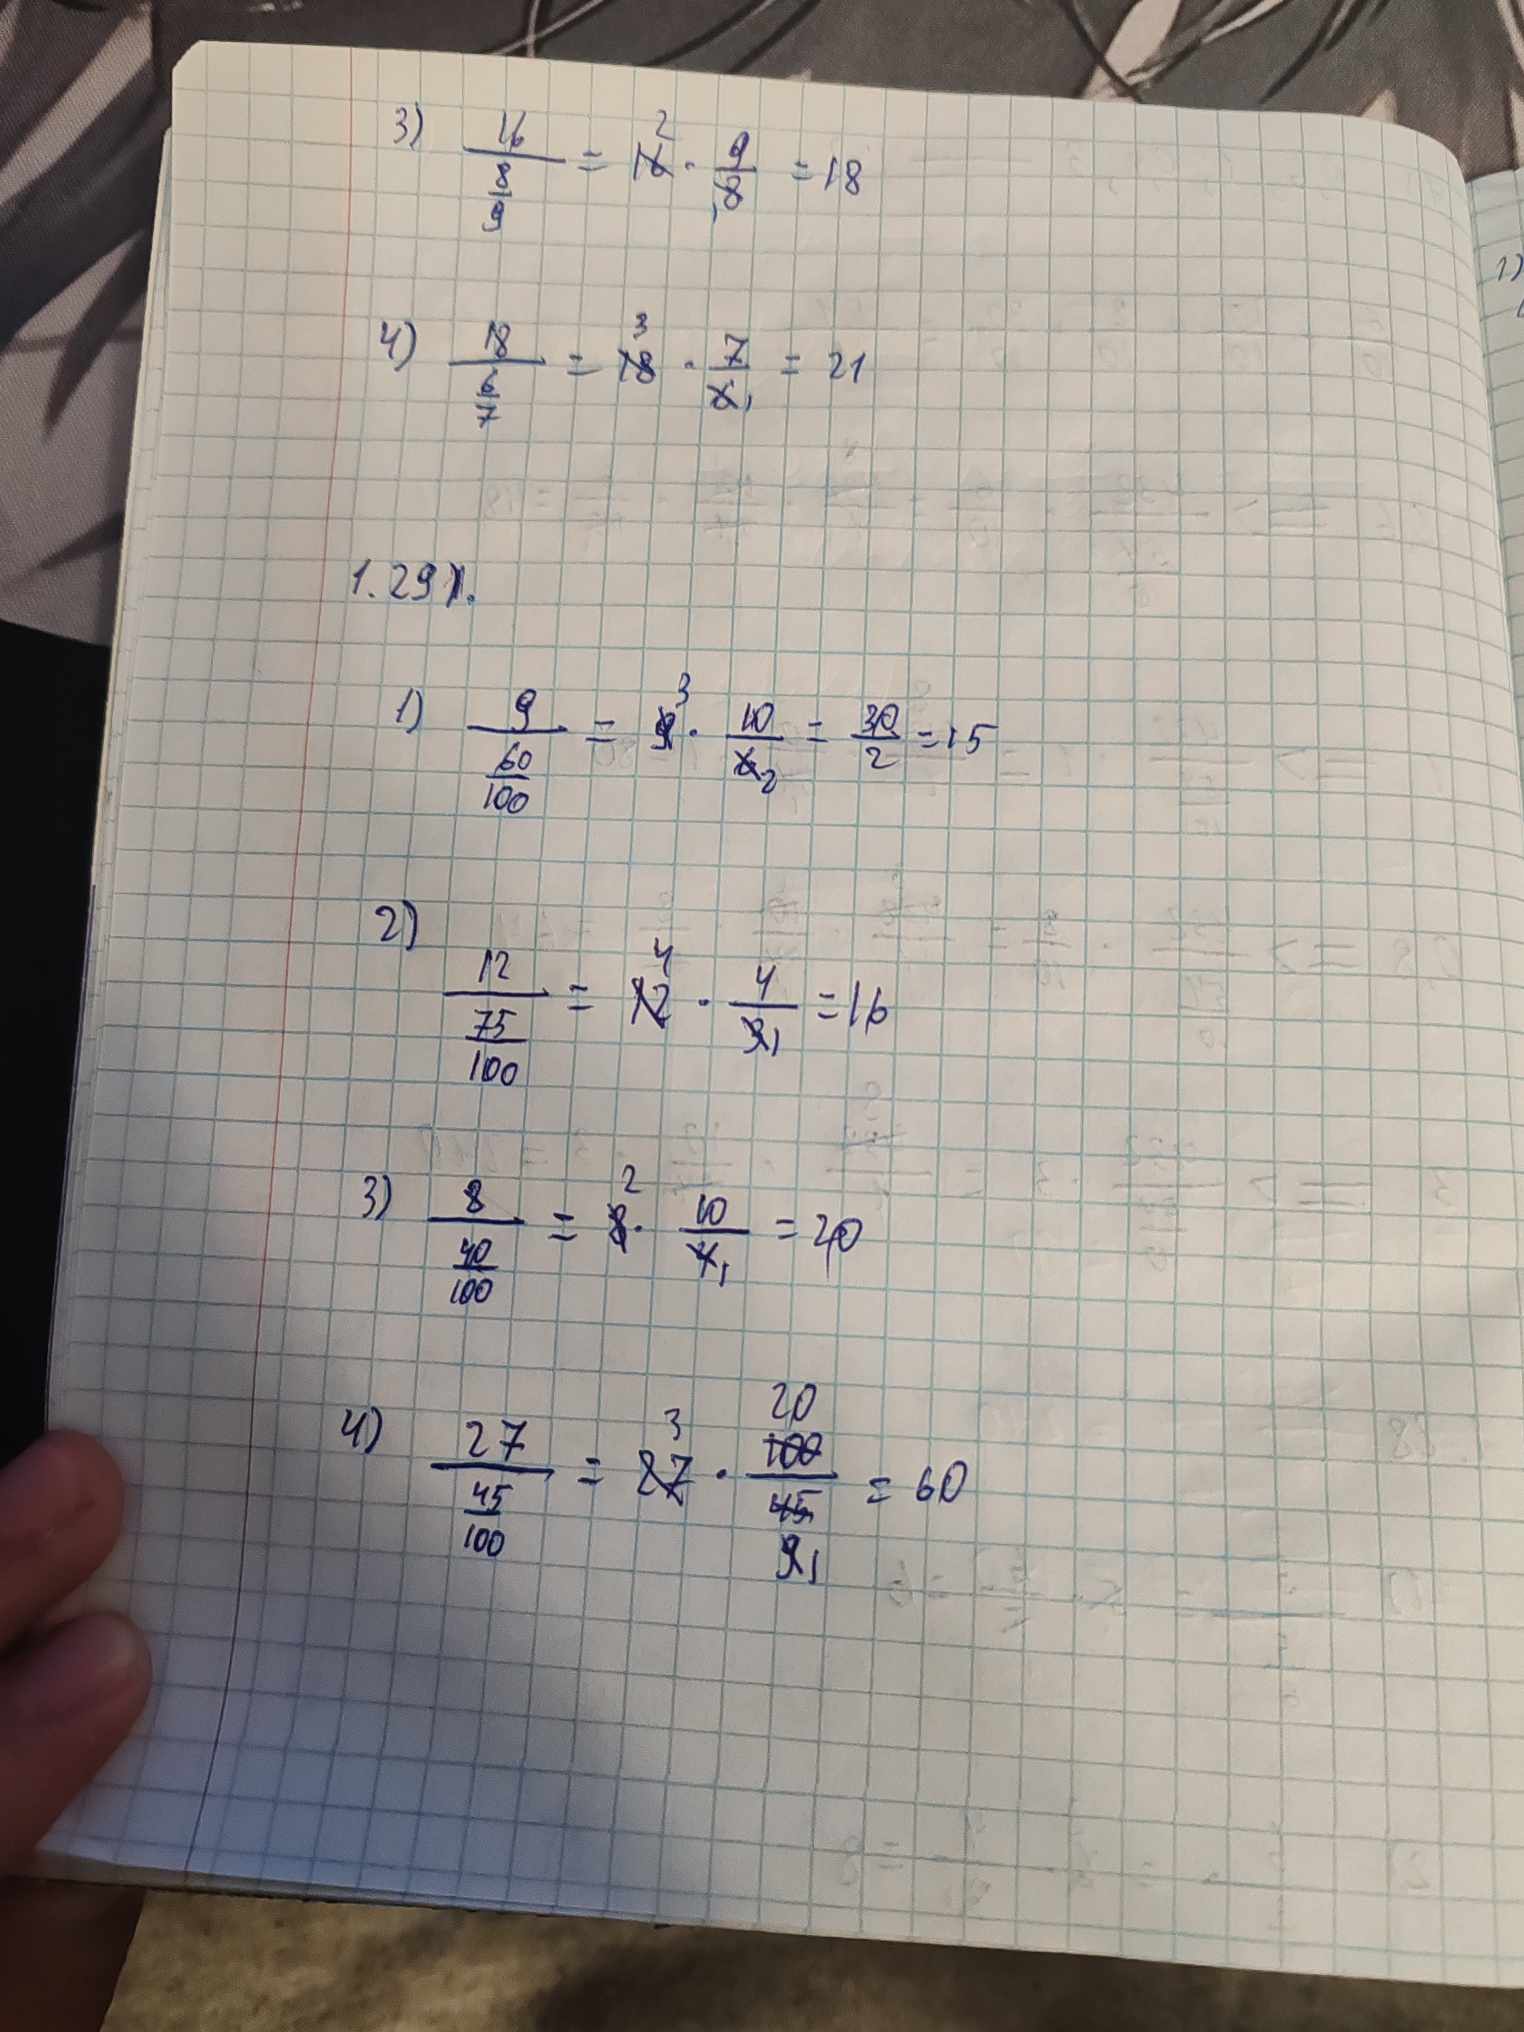 3) 16 / (8/9) = 16 2 · 9/8 1 = 18
4) 18 / (6/7) = 18 3 · 7/6 1 = 21
1.291.
1) 9 / (60/100) = 9 3 · 10/6 2 = 30/2 = 15
2)
12 / (75/100) = 12 4 · 4/3 1 = 16
3) 8 / (40/100) = 8 2 · 10/4 1 = 20
4) 27 / (45/100) = 27 3 · 100 20/45 9 1 = 60